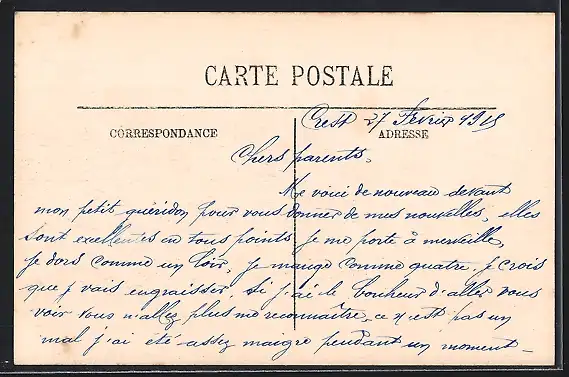 CARTE POSTALE
CORRESPONDANCE
ADRESSE
Crest 27 Février 1915
Chers parents.
Me voici de nouveau devant
mon petit quéridon pour vous donner de mes nouvelles, elles
sont excellentes en tous points je me porte à merveille,
je dors comme un loir, je mange comme quatre. je crois
que j vais engraisser. si j'ai le bonheur d'aller vous
voir vous n'allez plus me reconnaître, ce n'est pas un
mal j'ai été assez maigre pendant un moment –